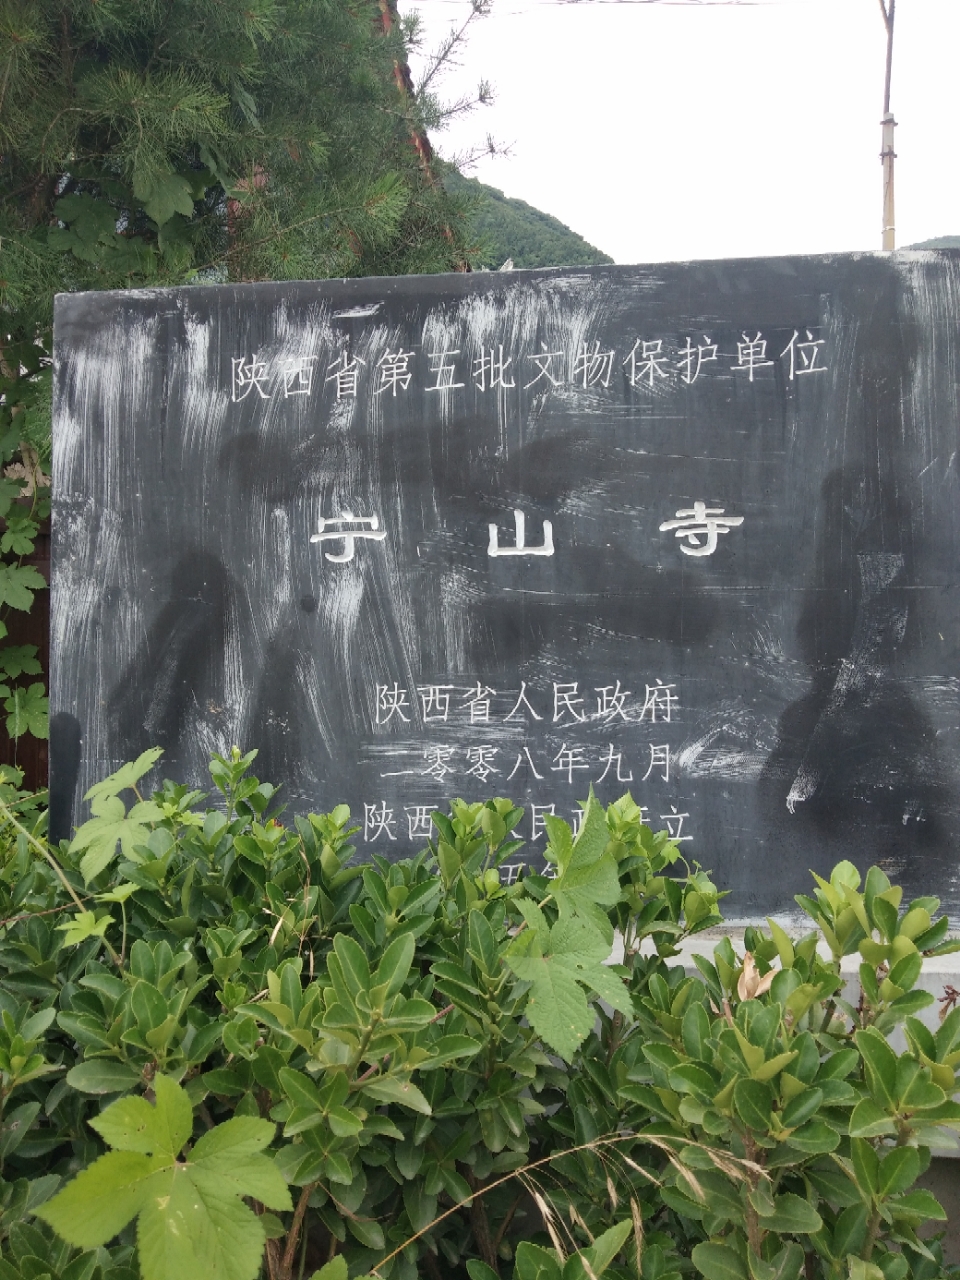 陕西省第五批文物保护单位
宁山寺
陕西省人民政府
二零零八年九月
陕西 人民政府立
五年